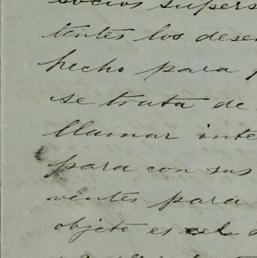 socios supers
tentes los dese
hecho para p
se trata de
llamar inte
para con sus
ventes para
objeto es el d